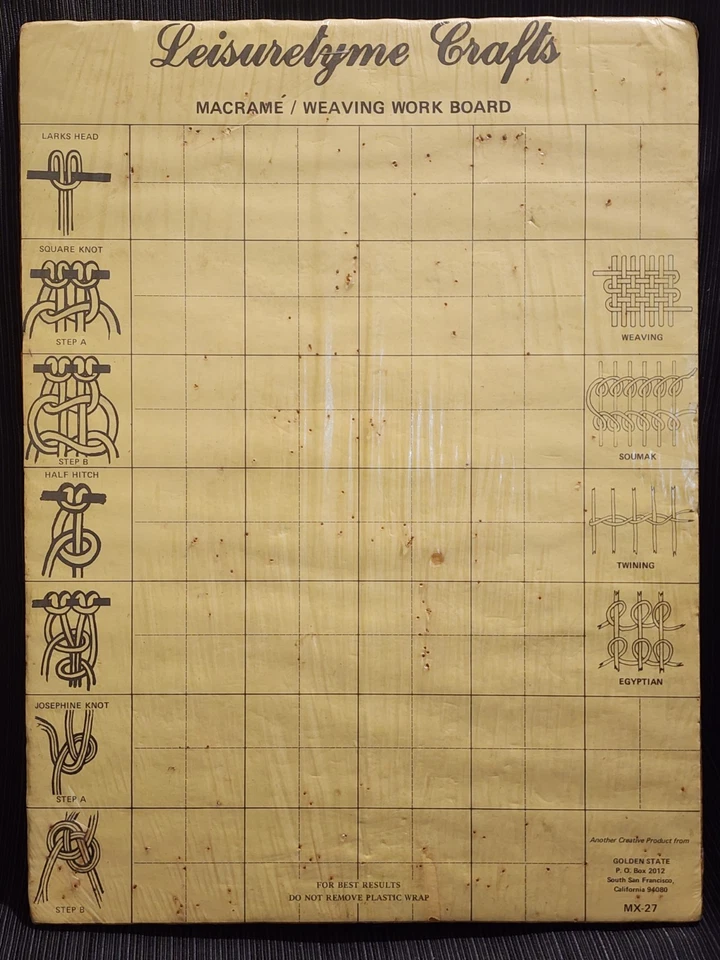 Leisuretyme Crafts
MACRAMÉ / WEAVING WORK BOARD
LARKS HEAD
SQUARE KNOT
STEP A
STEP B
HALF HITCH
JOSEPHINE KNOT
STEP A
STEP B
WEAVING
SOUMAK
TWINING
EGYPTIAN
FOR BEST RESULTS
DO NOT REMOVE PLASTIC WRAP
Another Creative Product from
GOLDEN STATE
P. O. Box 2012
South San Francisco,
California 94080
MX-27